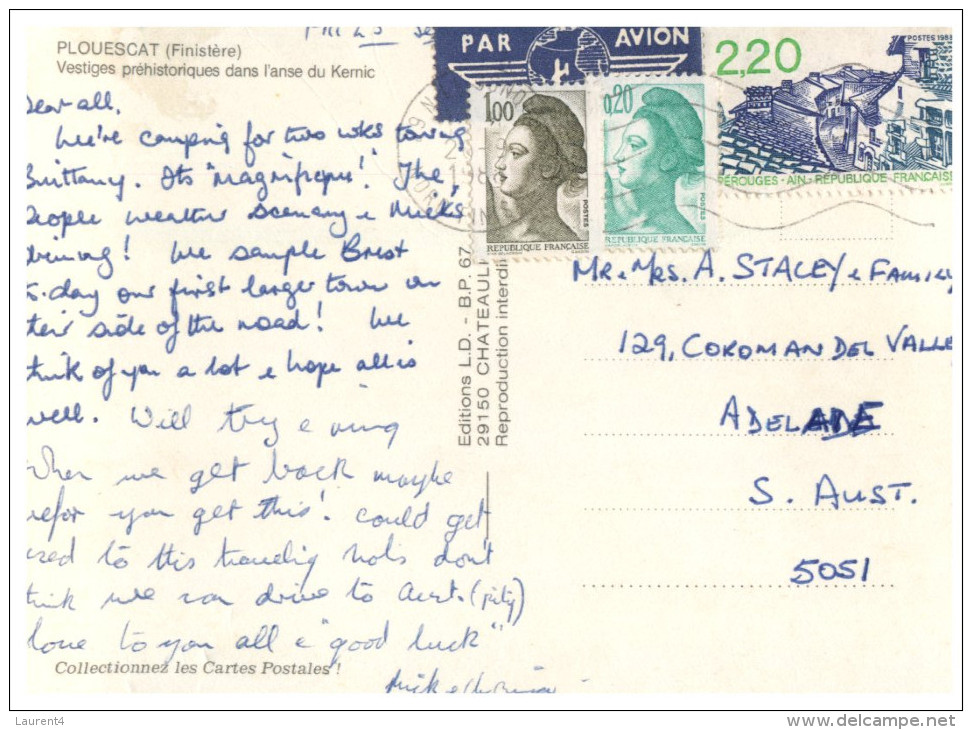 PLOUESCAT (Finistère)
Vestiges préhistoriques dans l'anse du Kernic
PAR AVION
1,00
POSTES
REPUBLIQUE FRANÇAISE
0,20
POSTES
REPUBLIQUE FRANÇAISE
2,20
POSTES 1988
PEROUGES - AIN - RÉPUBLIQUE FRANÇAISE
Dear all,
We're camping for two wks touring
Brittany. Its "Magnifique"! The
people weather scenery & Micks
driving! We sample Brest
to-day our first larger town on
their side of the road! We
think of you a lot & hope all is
well. Will try & ring
when we get back maybe
before you get this! Could get
used to this travelling hols don't
think we can drive to Aust. (pity)
love to you all & "good luck"
Mick &
Editions L.D. - B.P. 67
29150 CHATEAULI
Reproduction interdi
MR & MRS. A. STACEY & FAMILY
129, COROMANDEL VALLE
ADELAIDE
S. AUST.
5051
Collectionnez les Cartes Postales !
Laurent4
delcampe.net